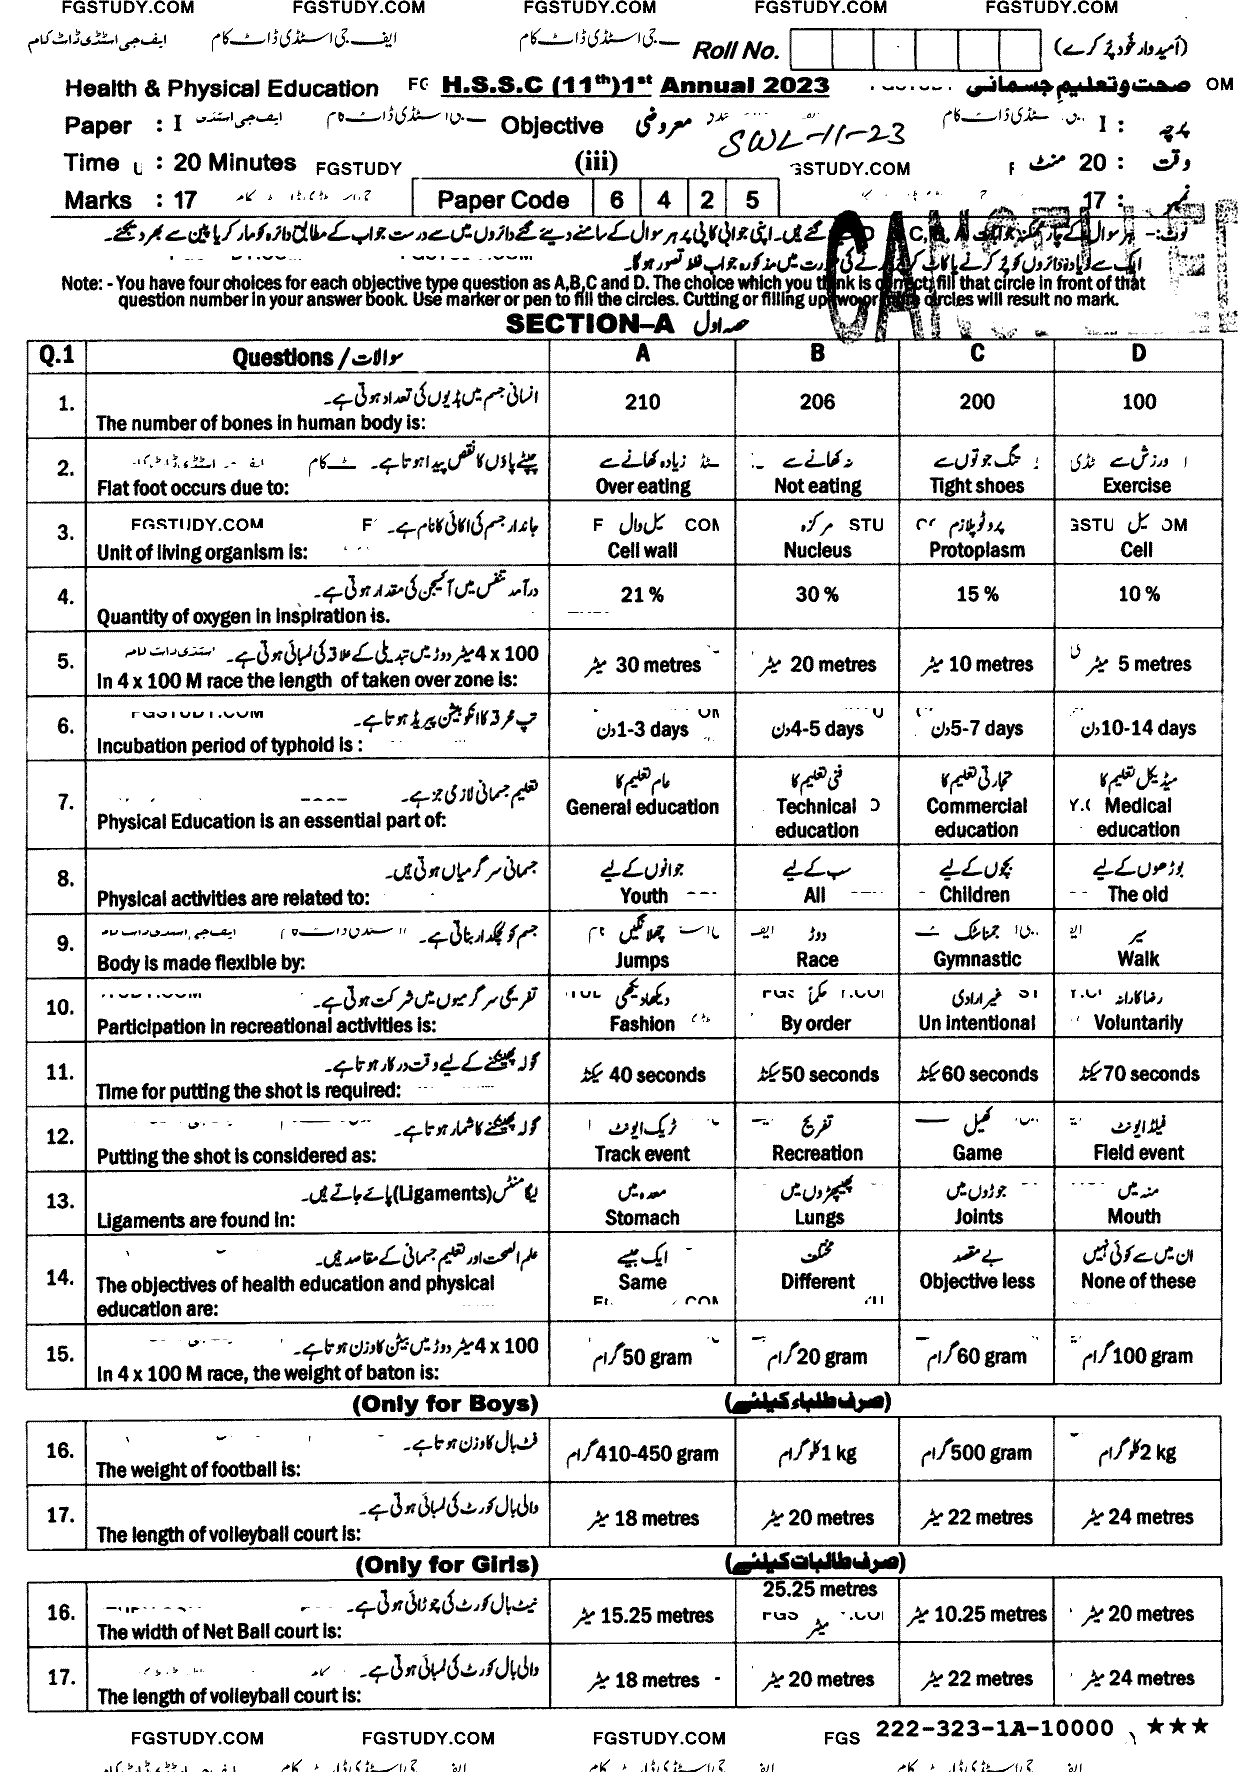 FGSTUDY.COM FGSTUDY.COM FGSTUDY.COM FGSTUDY.COM FGSTUDY.COM
ایف جی اسٹڈی ڈاٹ کام ایف جی اسٹڈی ڈاٹ کام جی اسٹڈی ڈاٹ کام Roll No. (اُمیدوار خود پُر کرے)
Health & Physical Education H.S.S.C (11th)1st Annual 2023 صحت و تعلیم جسمانی OM
Paper : I Objective معروضی SWL-11-23 پرچہ : I
Time : 20 Minutes FGSTUDY (iii) GSTUDY.COM وقت : 20 منٹ
Marks : 17 Paper Code 6 4 2 5 نمبر : 17
CANCELLED
Note: - You have four choices for each objective type question as A,B,C and D. The choice which you think is correct; fill that circle in front of that
question number in your answer book. Use marker or pen to fill the circles. Cutting or filling up two or more circles will result no mark.
SECTION–A حصہ اول
Q.1 Questions / سوالات A B C D
1. انسانی جسم میں ہڈیوں کی تعداد ہوتی ہے۔
The number of bones in human body is: 210 206 200 100
2. چپٹے پاؤں کا نقص پیدا ہوتا ہے۔ زیادہ کھانے سے نہ کھانے سے تنگ جوتوں سے ورزش سے
Flat foot occurs due to: Over eating Not eating Tight shoes Exercise
3. FGSTUDY.COM جاندار جسم کی اکائی کا نام ہے۔ سیل وال مرکزہ پروٹوپلازم سیل
Unit of living organism is: Cell wall Nucleus Protoplasm Cell
4. درآمد تنفس میں آکسیجن کی مقدار ہوتی ہے۔
Quantity of oxygen in inspiration is. 21 % 30 % 15 % 10 %
5. 4 x 100 میٹر دوڑ میں تبدیلی کے علاقہ کی لمبائی ہوتی ہے۔
In 4 x 100 M race the length of taken over zone is: 30 metres میٹر 20 metres میٹر 10 metres میٹر 5 metres میٹر
6. تپ محرقہ کا انکوبیشن پیریڈ ہوتا ہے۔
Incubation period of typhoid is : 1-3 days دن 4-5 days دن 5-7 days دن 10-14 days دن
7. تعلیم جسمانی لازمی جز ہے۔ عام تعلیم کا فنی تعلیم کا تجارتی تعلیم کا میڈیکل تعلیم کا
Physical Education is an essential part of: General education Technical education Commercial education Medical education
8. جسمانی سرگرمیاں ہوتی ہیں۔ جوانوں کے لیے سب کے لیے بچوں کے لیے بوڑھوں کے لیے
Physical activities are related to: Youth All Children The old
9. جسم کو لچکدار بناتی ہے۔ چھلانگیں دوڑ جمناسٹک سیر
Body is made flexible by: Jumps Race Gymnastic Walk
10. تفریحی سرگرمیوں میں شرکت ہوتی ہے۔ دیکھا دیکھی حکماً غیر ارادی رضاکارانہ
Participation in recreational activities is: Fashion By order Un intentional Voluntarily
11. گولہ پھینکنے کے لیے وقت درکار ہوتا ہے۔
Time for putting the shot is required: 40 seconds سیکنڈ 50 seconds سیکنڈ 60 seconds سیکنڈ 70 seconds سیکنڈ
12. گولہ پھینکنے کا شمار ہوتا ہے۔ ٹریک ایونٹ تفریح کھیل فیلڈ ایونٹ
Putting the shot is considered as: Track event Recreation Game Field event
13. لیگامنٹس (Ligaments) پائے جاتے ہیں۔ معدہ میں پھیپھڑوں میں جوڑوں میں منہ میں
Ligaments are found in: Stomach Lungs Joints Mouth
14. علم الصحت اور تعلیم جسمانی کے مقاصد ہیں۔ ایک جیسے مختلف بے مقصد ان میں سے کوئی نہیں
The objectives of health education and physical Same Different Objective less None of these
education are:
15. 4 x 100 میٹر دوڑ میں بیٹن کا وزن ہوتا ہے۔
In 4 x 100 M race, the weight of baton is: 50 gram گرام 20 gram گرام 60 gram گرام 100 gram گرام
(Only for Boys) (صرف طلباء کیلئے)
16. فٹ بال کا وزن ہوتا ہے۔
The weight of football is: 410-450 gram گرام 1 kg کلوگرام 500 gram گرام 2 kg کلوگرام
17. والی بال کورٹ کی لمبائی ہوتی ہے۔
The length of volleyball court is: 18 metres میٹر 20 metres میٹر 22 metres میٹر 24 metres میٹر
(Only for Girls) (صرف طالبات کیلئے)
16. نیٹ بال کورٹ کی چوڑائی ہوتی ہے۔
The width of Net Ball court is: 15.25 metres میٹر 25.25 metres میٹر 10.25 metres میٹر 20 metres میٹر
17. والی بال کورٹ کی لمبائی ہوتی ہے۔
The length of volleyball court is: 18 metres میٹر 20 metres میٹر 22 metres میٹر 24 metres میٹر
222-323-1A-10000 ★★★
FGSTUDY.COM FGSTUDY.COM FGSTUDY.COM FGS